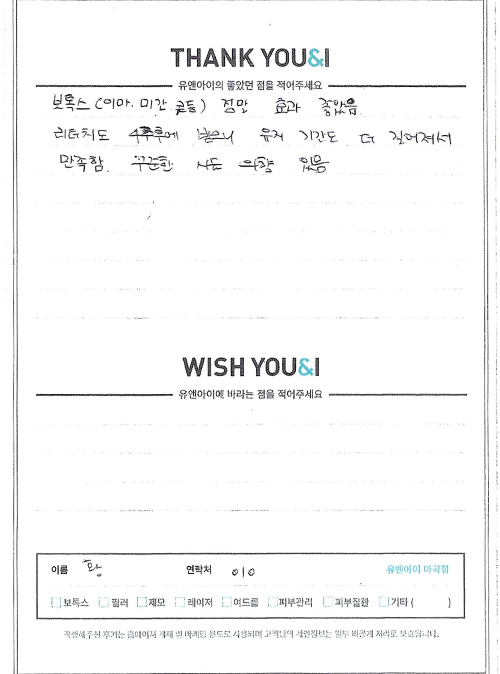 THANK YOU&I
유앤아이의 좋았던 점을 적어주세요
보톡스 (이마. 미간 콧등) 정말 효과 좋았음
리터치도 4주후에 받으니 유지 기간도 더 길어져서
만족함. 꾸준한 시술 의향 있음
WISH YOU&I
유앤아이에 바라는 점을 적어주세요
이름 황 연락처 010 유앤아이 마곡점
보톡스 필러 제모 레이저 여드름 피부관리 피부질환 기타 ( )
작성해주신 후기는 홈페이지 게재 및 마케팅 용도로 사용되며 고객님의 개인정보는 일부 비공개 처리로 보호됩니다.